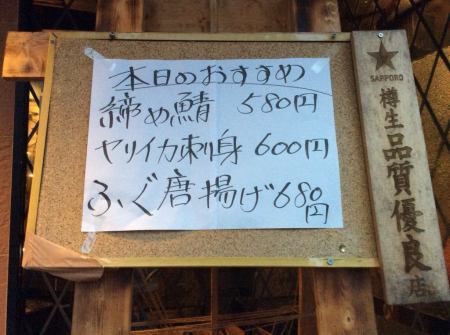 本日のおすすめ
締め鯖 580円
ヤリイカ刺身 600円
ふぐ唐揚げ 680円
★
SAPPORO
樽生品質優良店